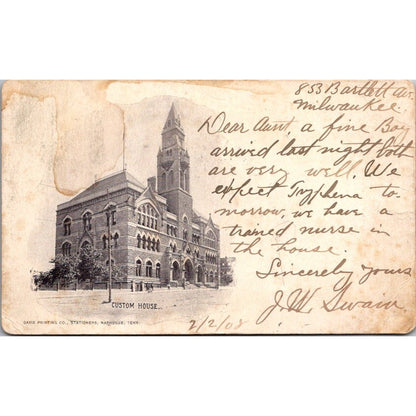 853 Bartlett Av.
Milwaukee.
Dear Aunt, a fine Boy
arrived last night both
are very well. We
expect Tryphena to-
morrow, we have a
trained nurse in
the house.
Sincerely yours
J.W. Swain
CUSTOM HOUSE.
2/2/08
DAVIE PRINTING CO., STATIONERS, NASHVILLE, TENN.